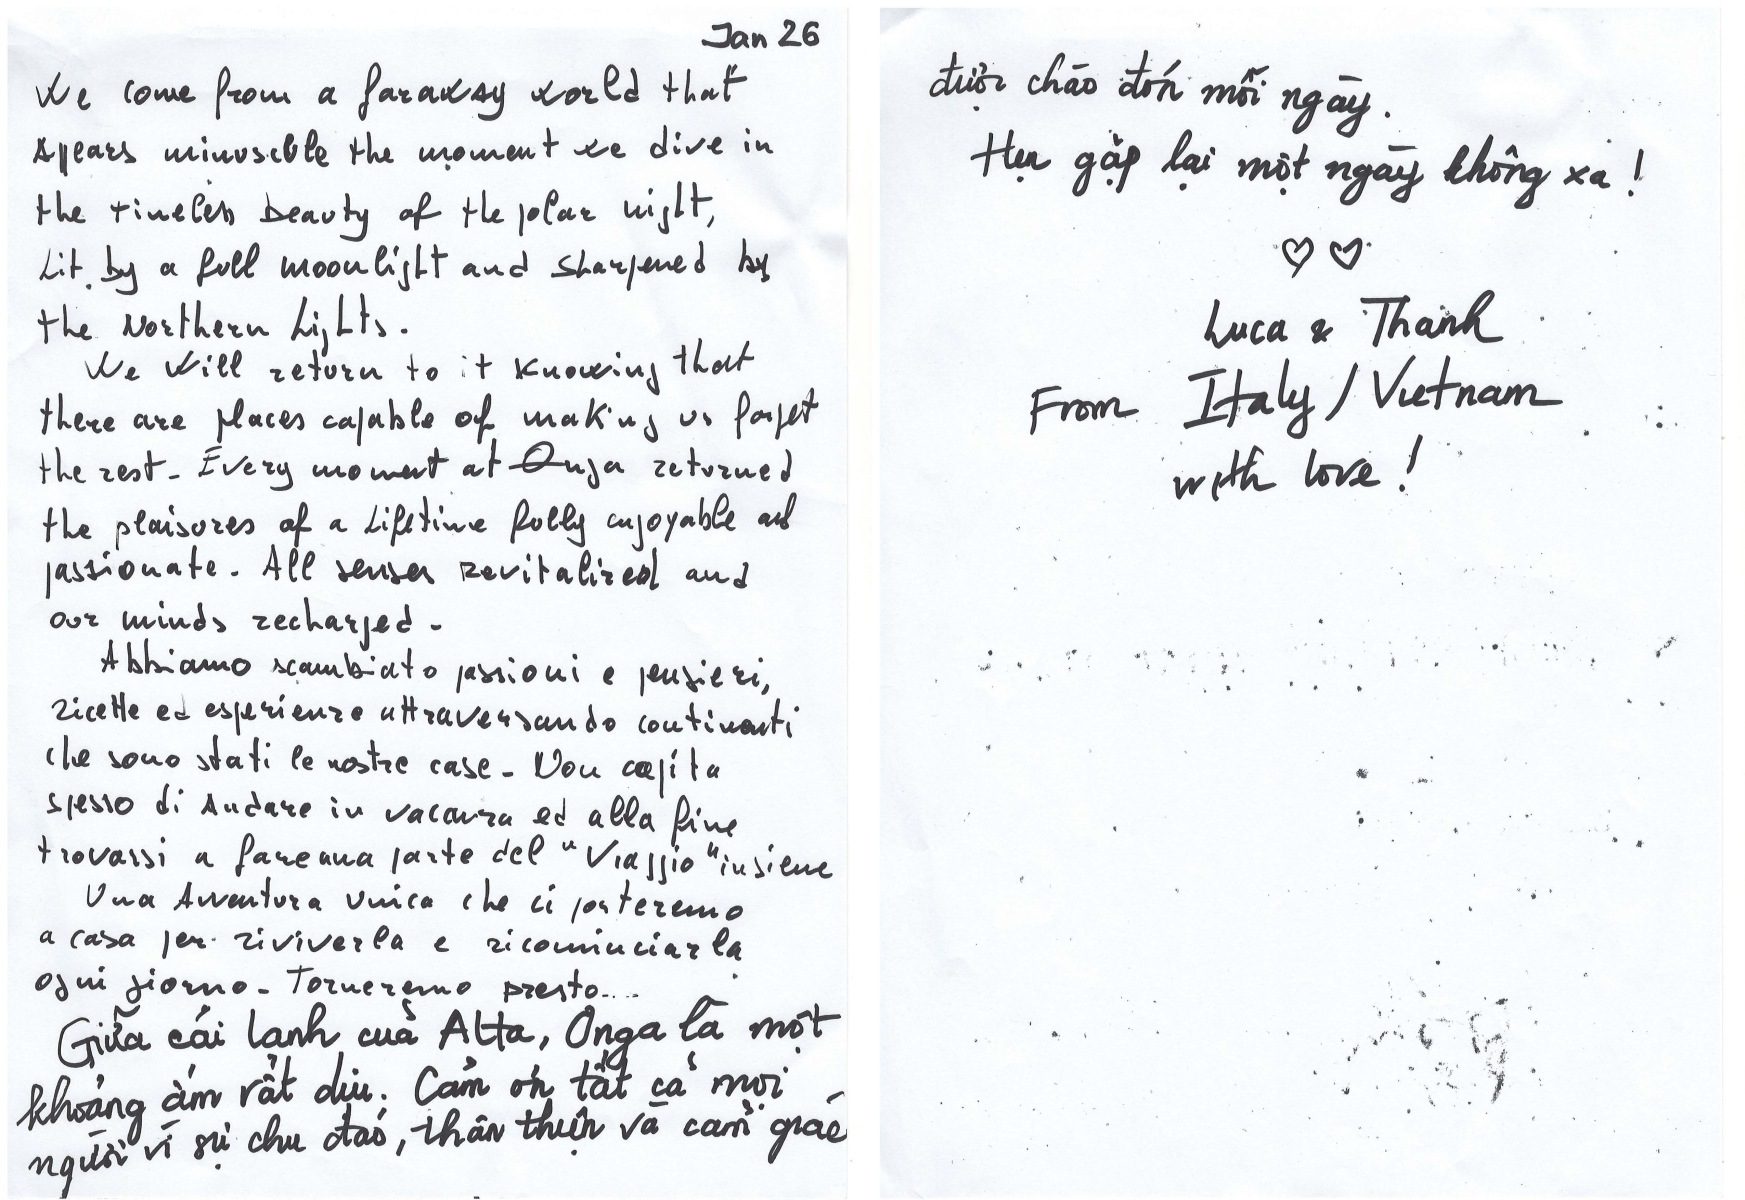 Jan 26
We come from a faraway world that
Apears minuscble the moment we dive in
the timeless beauty of the polar night,
Lit by a full moonlight and sharpened by
the Northern Lights.
We will return to it knowing that
there are places capable of making us forget
the rest. Every moment at Onga returned
the plaisures of a Lifetime fully enjoyable and
passionate. All senses revitalized and
our minds recharged.
Abbiamo scambiato passioni e pensieri,
ricette ed esperienze attraversando continenti
che sono stati le nostre case. Non capita
spesso di andare in vacanza ed alla fine
trovarsi a farenna parte del "Viaggio" insieme
Una Avventura unica che ci porteremo
a casa per riviverla e ricominciarla
ogni giorno. Torneremo presto...
Giữa cái lạnh của Alta, Onga là một
khoảng ấm rất dịu. Cảm ơn tất cả mọi
người vì sự chu đáo, thân thiện và cảm giác
được chào đón mỗi ngày.
Hẹn gặp lại một ngày không xa!
♡ ♡
Luca & Thanh
From Italy / Vietnam
with love!